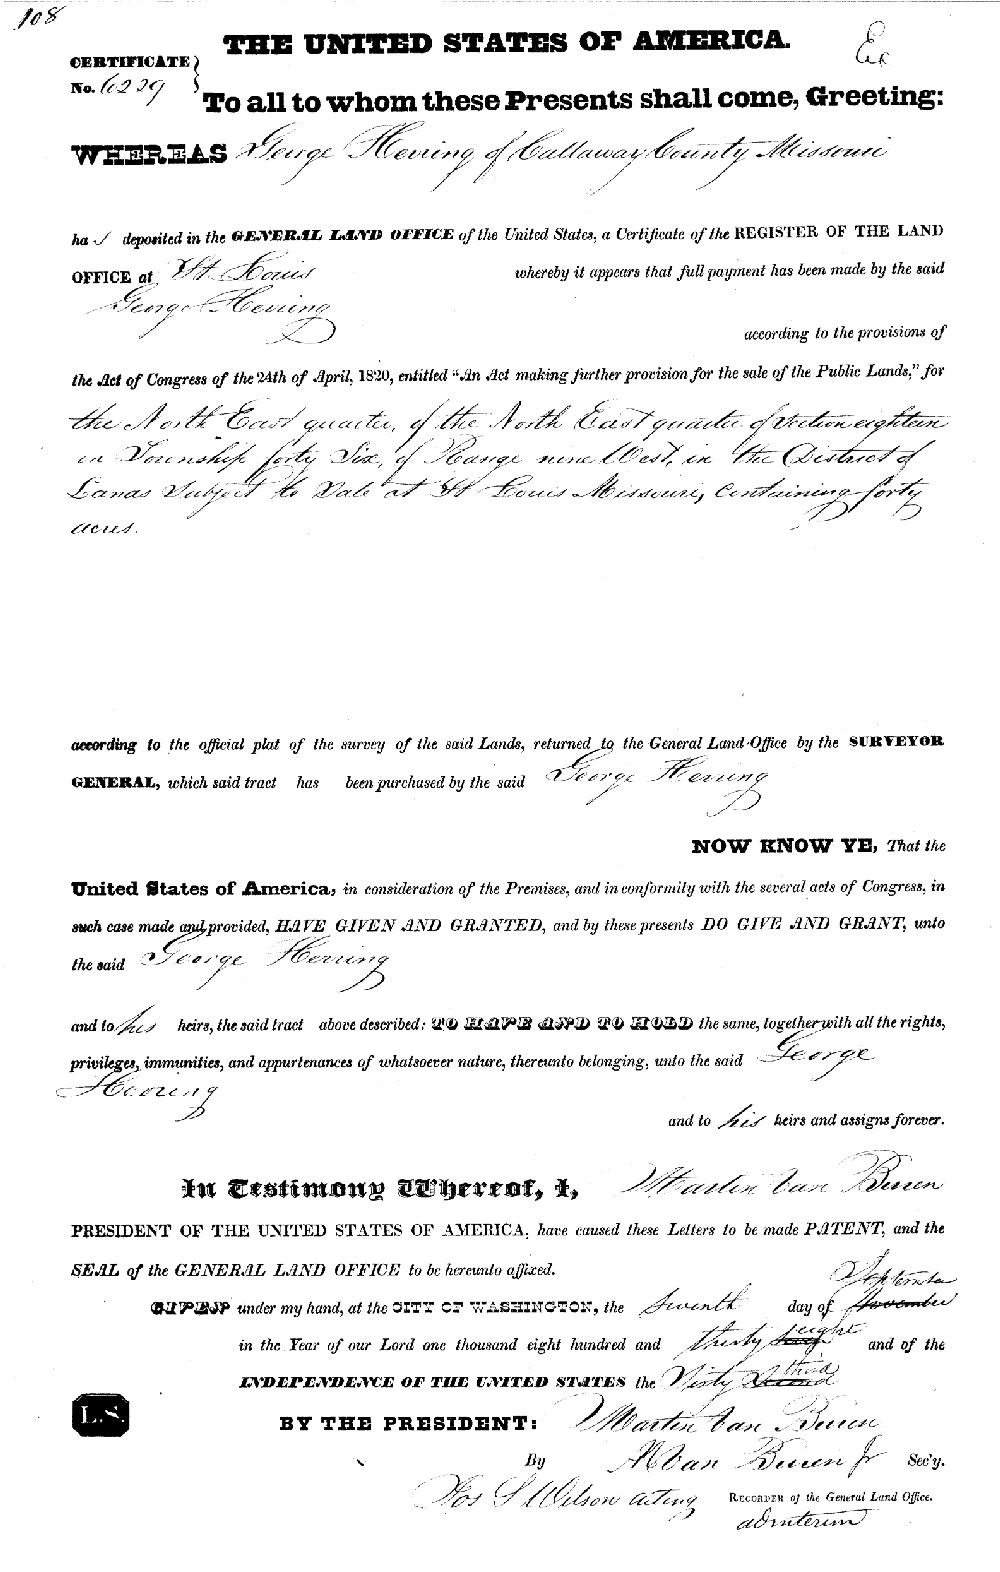 108
THE UNITED STATES OF AMERICA.
Ex
CERTIFICATE
No. 6229
To all to whom these Presents shall come, Greeting:
WHEREAS George Herring of Callaway County Missouri
ha s deposited in the GENERAL LAND OFFICE of the United States, a Certificate of the REGISTER OF THE LAND
OFFICE at St Louis whereby it appears that full payment has been made by the said
George Herring
according to the provisions of
the Act of Congress of the 24th of April, 1820, entitled "An Act making further provision for the sale of the Public Lands," for
the North East quarter, of the North East quarter of Section eighteen
in Township forty Six, of Range nine West, in the District of
Lands Subject to Sale at St Louis Missouri, containing forty
acres.
according to the official plat of the survey of the said Lands, returned to the General Land-Office by the SURVEYOR
GENERAL, which said tract has been purchased by the said George Herring
NOW KNOW YE, That the
United States of America, in consideration of the Premises, and in conformity with the several acts of Congress, in
such case made and provided, HAVE GIVEN AND GRANTED, and by these presents DO GIVE AND GRANT, unto
the said George Herring
and to his heirs, the said tract above described: TO HAVE AND TO HOLD the same, together with all the rights,
privileges, immunities, and appurtenances of whatsoever nature, thereunto belonging, unto the said George
Herring
and to his heirs and assigns forever.
In Testimony Whereof, I, Martin Van Buren
PRESIDENT OF THE UNITED STATES OF AMERICA, have caused these Letters to be made PATENT, and the
SEAL of the GENERAL LAND OFFICE to be hereunto affixed.
September
GIVEN under my hand, at the CITY OF WASHINGTON, the Seventh day of November
in the Year of our Lord one thousand eight hundred and thirty eight and of the
INDEPENDENCE OF THE UNITED STATES the Sixty Second third
L.S.
BY THE PRESIDENT: Martin Van Buren
By M Van Buren Jr Sec'y.
Jos S Wilson acting RECORDER of the General Land Office.
ad interim